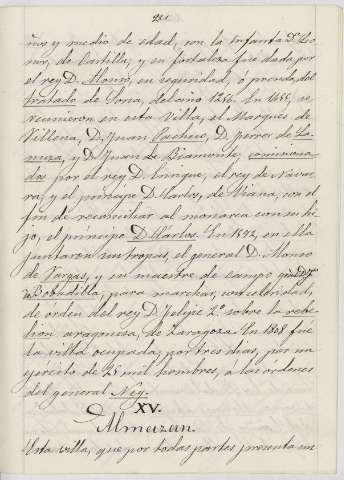 221.
ños y medio de edad, con la infanta Dª Leo
nor, de Castilla; y su fortaleza fué dada por
el rey D. Alonso, en seguridad, ó prenda, del
tratado de Soria, del año 1256. En 1455, se
reunieron en esta Villa, el Marques de
Villena, D. Juan Pacheco, D. Ferrer de La-
nuza, y D. Juan de Biamonte, comisiona-
dos por el rey D. Enrique, el rey de Navar
ra, y el príncipe D. Carlos, de Viana, con el
fin de reconciliar al monarca con su hi-
jo, el príncipe D. Carlos. En 1592, en ella
juntaron sus tropas, el general D. Alonso
de Vargas, y su maestre de campo
Bobadilla, para marchar, con celeridad,
de orden del rey D. Felipe 2º sobre la rebe-
lion aragonesa, de Zaragoza. En 1808 fué
la villa ocupada, por tres dias, por un
ejército de 25 mil hombres, á las ordenes
del general Ney.
XV.
Almazan.
Esta villa, que por todas partes presenta un